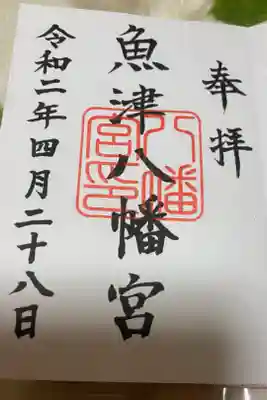 奉拝
魚津八幡宮
八幡宮印
令和二年四月二十八日